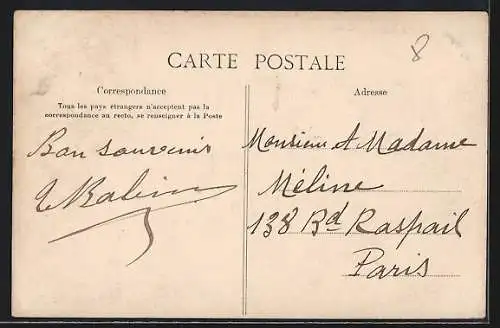 8
CARTE POSTALE
Correspondance
Tous les pays étrangers n'acceptent pas la
correspondance au recto, se renseigner à la Poste
Bon souvenir
Adresse
Monsieur et Madame
Méline
138 Bd Raspail
Paris